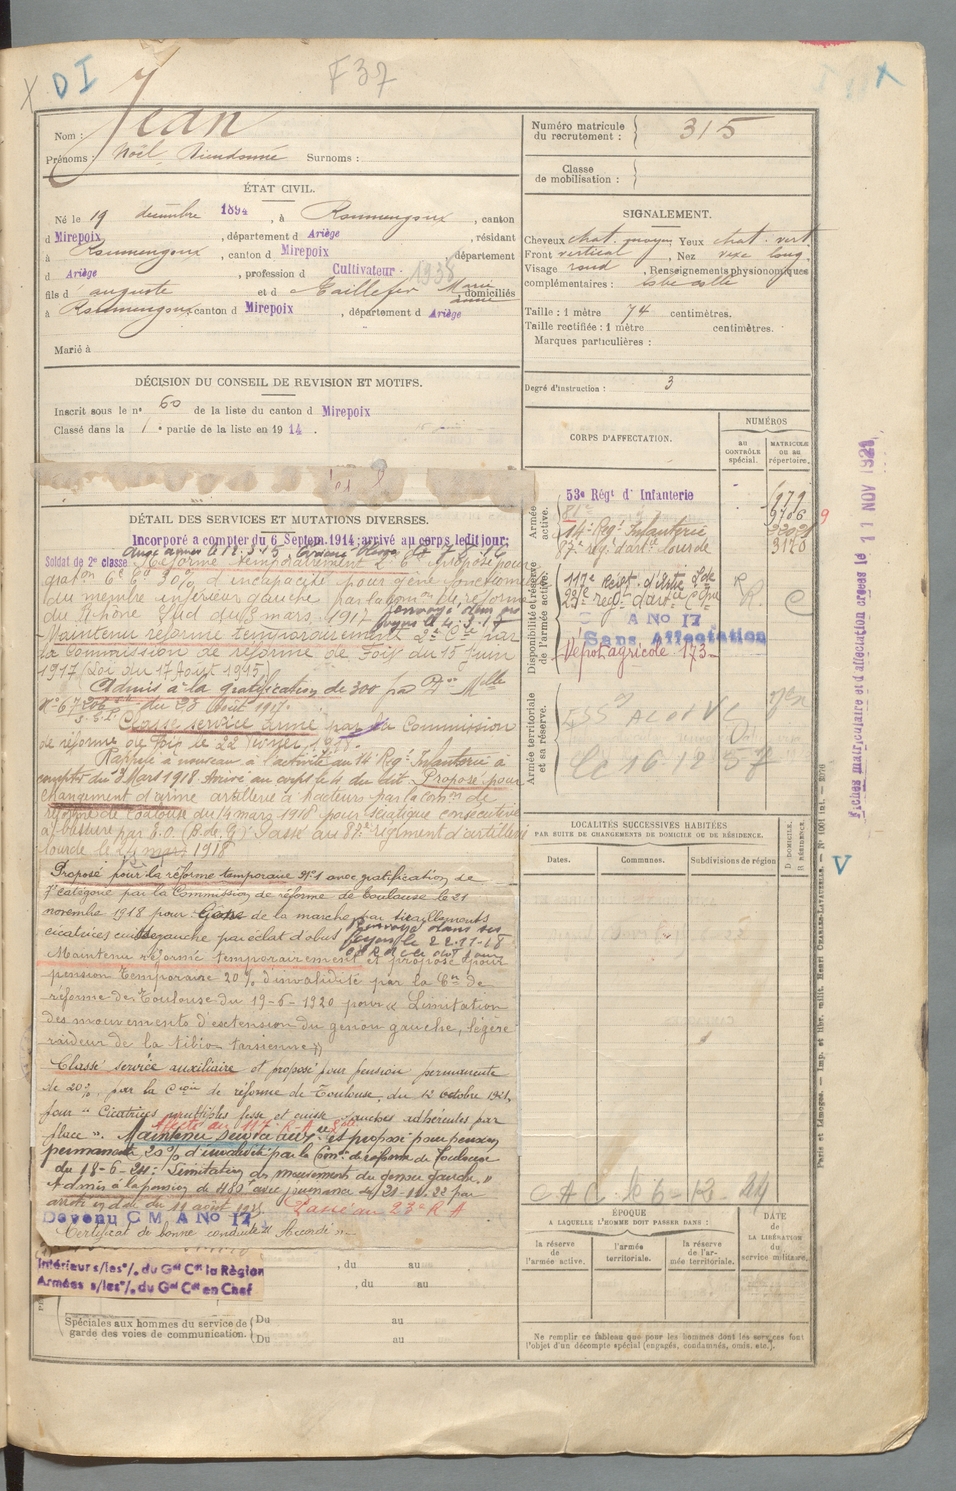 X DI
F37
X
Nom : Jean
Prénoms : Noël Dieudonné Surnoms :
Numéro matricule du recrutement : 315
Classe de mobilisation :
ÉTAT CIVIL.
Né le 19 décembre 1894, à Roumengoux, canton
d Mirepoix, département d Ariège, résidant
à Roumengoux, canton d Mirepoix, département
d Ariège, profession d Cultivateur 1938
fils d' auguste et d Taillefer Marie anne, domiciliés
à Roumengoux canton d Mirepoix, département d Ariège
Marié à
SIGNALEMENT.
Cheveux chat. moyen Yeux chat. vert
Front vertical, Nez vexe long.
Visage rond, Renseignements physionomiques
complémentaires :
Taille : 1 mètre 74 centimètres.
Taille rectifiée : 1 mètre centimètres.
Marques particulières :
Degré d'instruction : 3
DÉCISION DU CONSEIL DE REVISION ET MOTIFS.
Inscrit sous le n° 60 de la liste du canton d Mirepoix
Classé dans la 1e partie de la liste en 1914.
CORPS D'AFFECTATION.
NUMÉROS
AU CONTRÔLE spécial.
MATRICULE ou au répertoire.
Armée active.
53e Régt d' Infanterie
14e Régt Infanterie
87e rég. d'art. lourde 3120
Disponibilité et réserve de l'armée active.
117e régt. d'artie Lde
23e régt d'artie Cgne R. C
C A No 17
Sans Affectation
Dépot agricole 173
Armée territoriale et sa réserve.
le 16-12 57
DÉTAIL DES SERVICES ET MUTATIONS DIVERSES.
Incorporé à compter du 6 Septem. 1914; arrivé au corps ledit jour;
Soldat de 2e classe.
Réforme temporairement 2e Ce. Proposé pour
gratton 6e Ce 30% d'incapacité pour gêne fonctionnelle
du membre inférieur gauche par la Comon de réforme
du Rhône Sud du 8 mars 1917 Renvoyé dans ses foyers le 4.3.17
Maintenu réformé temporairement 2e Ce par
la Commission de réforme de Foix du 15 Juin
1917 (Loi du 17 Août 1915).
Admis à la gratification de 300 par Don Mlle
du 28 Août 1917.
Classé service armé par la Commission
de réforme de Foix le 22
Rappelé à nouveau à l'activité au 14e Régt Infanterie à
compter du 3 Mars 1918. Arrivé au corps le 4 du dit. Proposé pour
changement d'arme artillerie à tracteurs par la Comon de
réforme de Toulouse du 14 mars 1918 pour sciatique consécutive
à blessure par E.O. (B. de G). Passé au 87e régiment d'artillerie
lourde le 14 mars 1918
Proposé pour la réforme temporaire No 1 avec gratification de
7e catégorie par la Commission de réforme de Toulouse le 21
novembre 1918 pour Gêne de la marche par tiraillements
cicatrices cuisse gauche par éclat d'obus. Renvoyé dans ses foyers le 22.11.18
Maintenu réformé temporairement et proposé pour
pension temporaire 20% d'invalidité par la Con de
réforme de Toulouse du 19-6-1920 pour « Limitation
des mouvements d'extension du genou gauche, légère
raideur de la tibio tarsienne »
Classé service auxiliaire et proposé pour pension permanente
de 20%, par la Coion de réforme de Toulouse, du 12 octobre 1921,
pour " Cicatrices multiples fesse et cuisse gauches adhérentes par
place ". Affecté au 117 R.A.
Maintenu service auxre et proposé pour pension
permanente 20% d'invalidité par la Comon de réforme de Toulouse
du 18-6-24: Limitation des mouvements du genou gauche. "
Admis à la pension de 480f avec jouissance du 21-11-22 par
arrêté en date du 11 août 1925 Passé au 23e R A
Devenu C M A No 17
Certificat de bonne conduite " Accordé "
Intérieur s/les o/. du Gal Ct la Région
Armées s/les o/. du Gal Ct en Chef
, du au
, du au
Spéciales aux hommes du service de garde des voies de communication.
Du au
Du au
LOCALITÉS SUCCESSIVES HABITÉES
PAR SUITE DE CHANGEMENTS DE DOMICILE OU DE RÉSIDENCE.
Dates.
Communes.
Subdivisions de région
D DOMICILE. R RÉSIDENCE.
C A C le 6-12 44
ÉPOQUE
A LAQUELLE L'HOMME DOIT PASSER DANS :
la réserve de l'armée active.
l'armée territoriale.
la réserve de l'armée territoriale.
DATE de LA LIBÉRATION du service militaire.
Ne remplir ce tableau que pour les hommes dont les services font
l'objet d'un décompte spécial (engagés, condamnés, omis, etc.).
Paris et Limoges. — Imp. et libr. milit. Henri CHARLES-LAVAUZELLE. — N° 1001 int.
Fiches matriculaire et d'affectation créées le 11 NOV 192
V